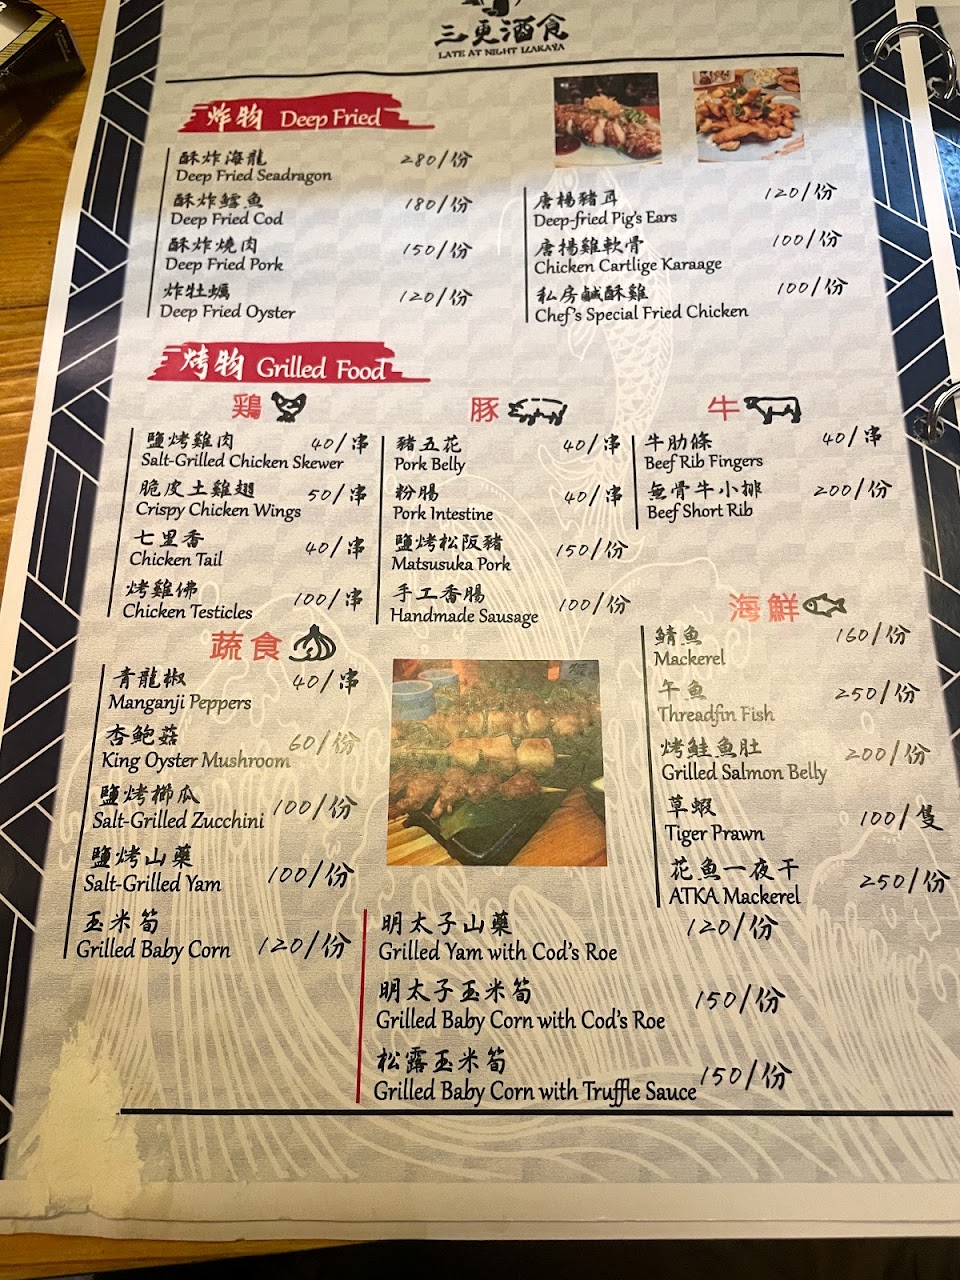 三更酒食
LATE AT NIGHT IZAKAYA
炸物 Deep Fried
酥炸海龍 280/份
Deep Fried Seadragon
酥炸鱈魚 180/份
Deep Fried Cod
酥炸燒肉 150/份
Deep Fried Pork
炸牡蠣 120/份
Deep Fried Oyster
唐楊豬耳 120/份
Deep-fried Pig's Ears
唐揚雞軟骨 100/份
Chicken Cartlige Karaage
私房鹹酥雞 100/份
Chef's Special Fried Chicken
烤物 Grilled Food
鶏
鹽烤雞肉 40/串
Salt-Grilled Chicken Skewer
脆皮土雞翅 50/串
Crispy Chicken Wings
七里香 40/串
Chicken Tail
烤雞佛 100/串
Chicken Testicles
豚
豬五花 40/串
Pork Belly
粉腸 40/串
Pork Intestine
鹽烤松阪豬 150/份
Matsusuka Pork
手工香腸 100/份
Handmade Sausage
牛
牛肋條 40/串
Beef Rib Fingers
無骨牛小排 200/份
Beef Short Rib
蔬食
青龍椒 40/串
Manganji Peppers
杏鮑菇 60/份
King Oyster Mushroom
鹽烤櫛瓜 100/份
Salt-Grilled Zucchini
鹽烤山藥 100/份
Salt-Grilled Yam
玉米筍 120/份
Grilled Baby Corn
海鮮
鯖魚 160/份
Mackerel
午魚 250/份
Threadfin Fish
烤鮭魚肚 200/份
Grilled Salmon Belly
草蝦 100/隻
Tiger Prawn
花魚一夜干 250/份
ATKA Mackerel
明太子山藥 120/份
Grilled Yam with Cod's Roe
明太子玉米筍 150/份
Grilled Baby Corn with Cod's Roe
松露玉米筍 150/份
Grilled Baby Corn with Truffle Sauce